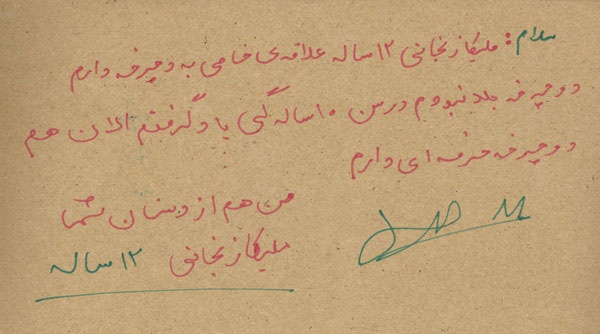 سلام: ملیکا زنجانی ۱۲ ساله علاقه‌ی خاصی به دوچرخه دارم
دوچرخه بلد نبودم در سن ۱۰ سالگی یاد گرفتم الان هم
دوچرخه حرفه‌ای دارم
من هم از دوستان شما
ملیکا زنجانی ۱۲ ساله